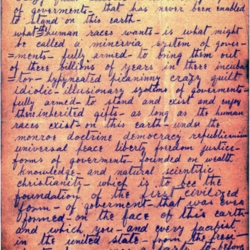 of goverments- that has never been enabled
to stand on this earth-
what human races wants- is what might
be called a minervia system of gover-
ments- fully armed to bring them out
of these billions of years in these
tor- hypenated picaninny crazy quilt
idiotic- illusionary systems of goverments-
fully armed to stand and exist and enjoy
these inherited gifts- as long as the human
races exist on this earth- under its
monroe doctrine democracy republic
universal peace liberty freedom justice-
forms of goverments- founded on wealth
knowledge- and natural scientific
christianity- which is to be the
foundation of the first civilized
form of goverment- that was ever
formed- on the face of this earth
and which you- and every pacifist
in the united state- from the